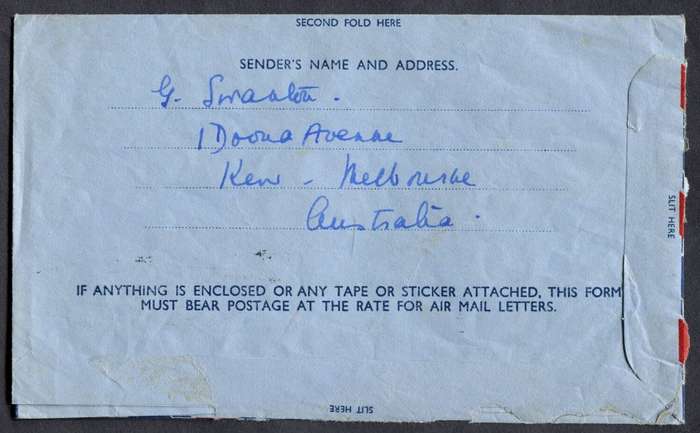 SECOND FOLD HERE
SENDER'S NAME AND ADDRESS.
G. Swanton.
1 Doona Avenue
Kew - Melbourne
Australia.
SLIT HERE
IF ANYTHING IS ENCLOSED OR ANY TAPE OR STICKER ATTACHED, THIS FORM
MUST BEAR POSTAGE AT THE RATE FOR AIR MAIL LETTERS.
SLIT HERE